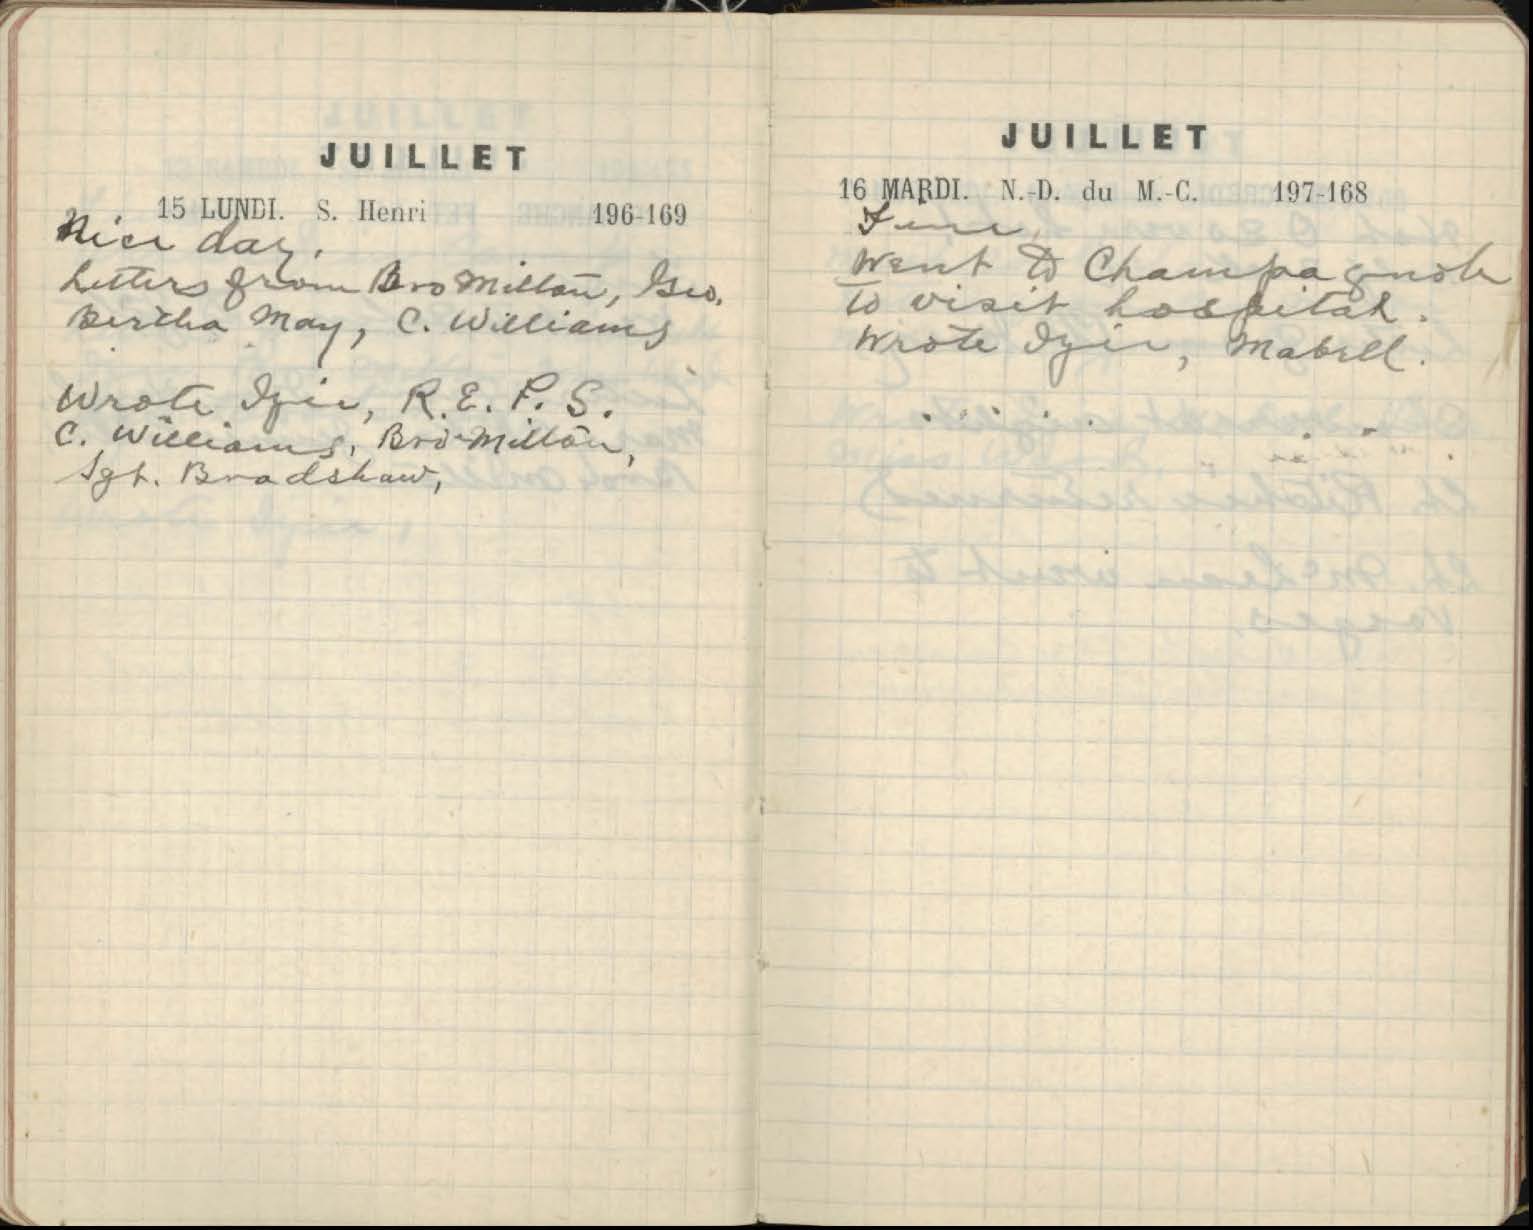 JUILLET
15 LUNDI. S. Henri 196-169
Nice day.
Letters from Bro Milton, Geo.
Bertha May, C. Williams
Wrote Izie, R.E.P.S.
C. Williams, Bro Milton,
Sgt. Bradshaw,
JUILLET
16 MARDI. N.-D. du M.-C. 197-168
Fine.
Went to Champagnole
to visit hospital.
Wrote Izie, Mabell.